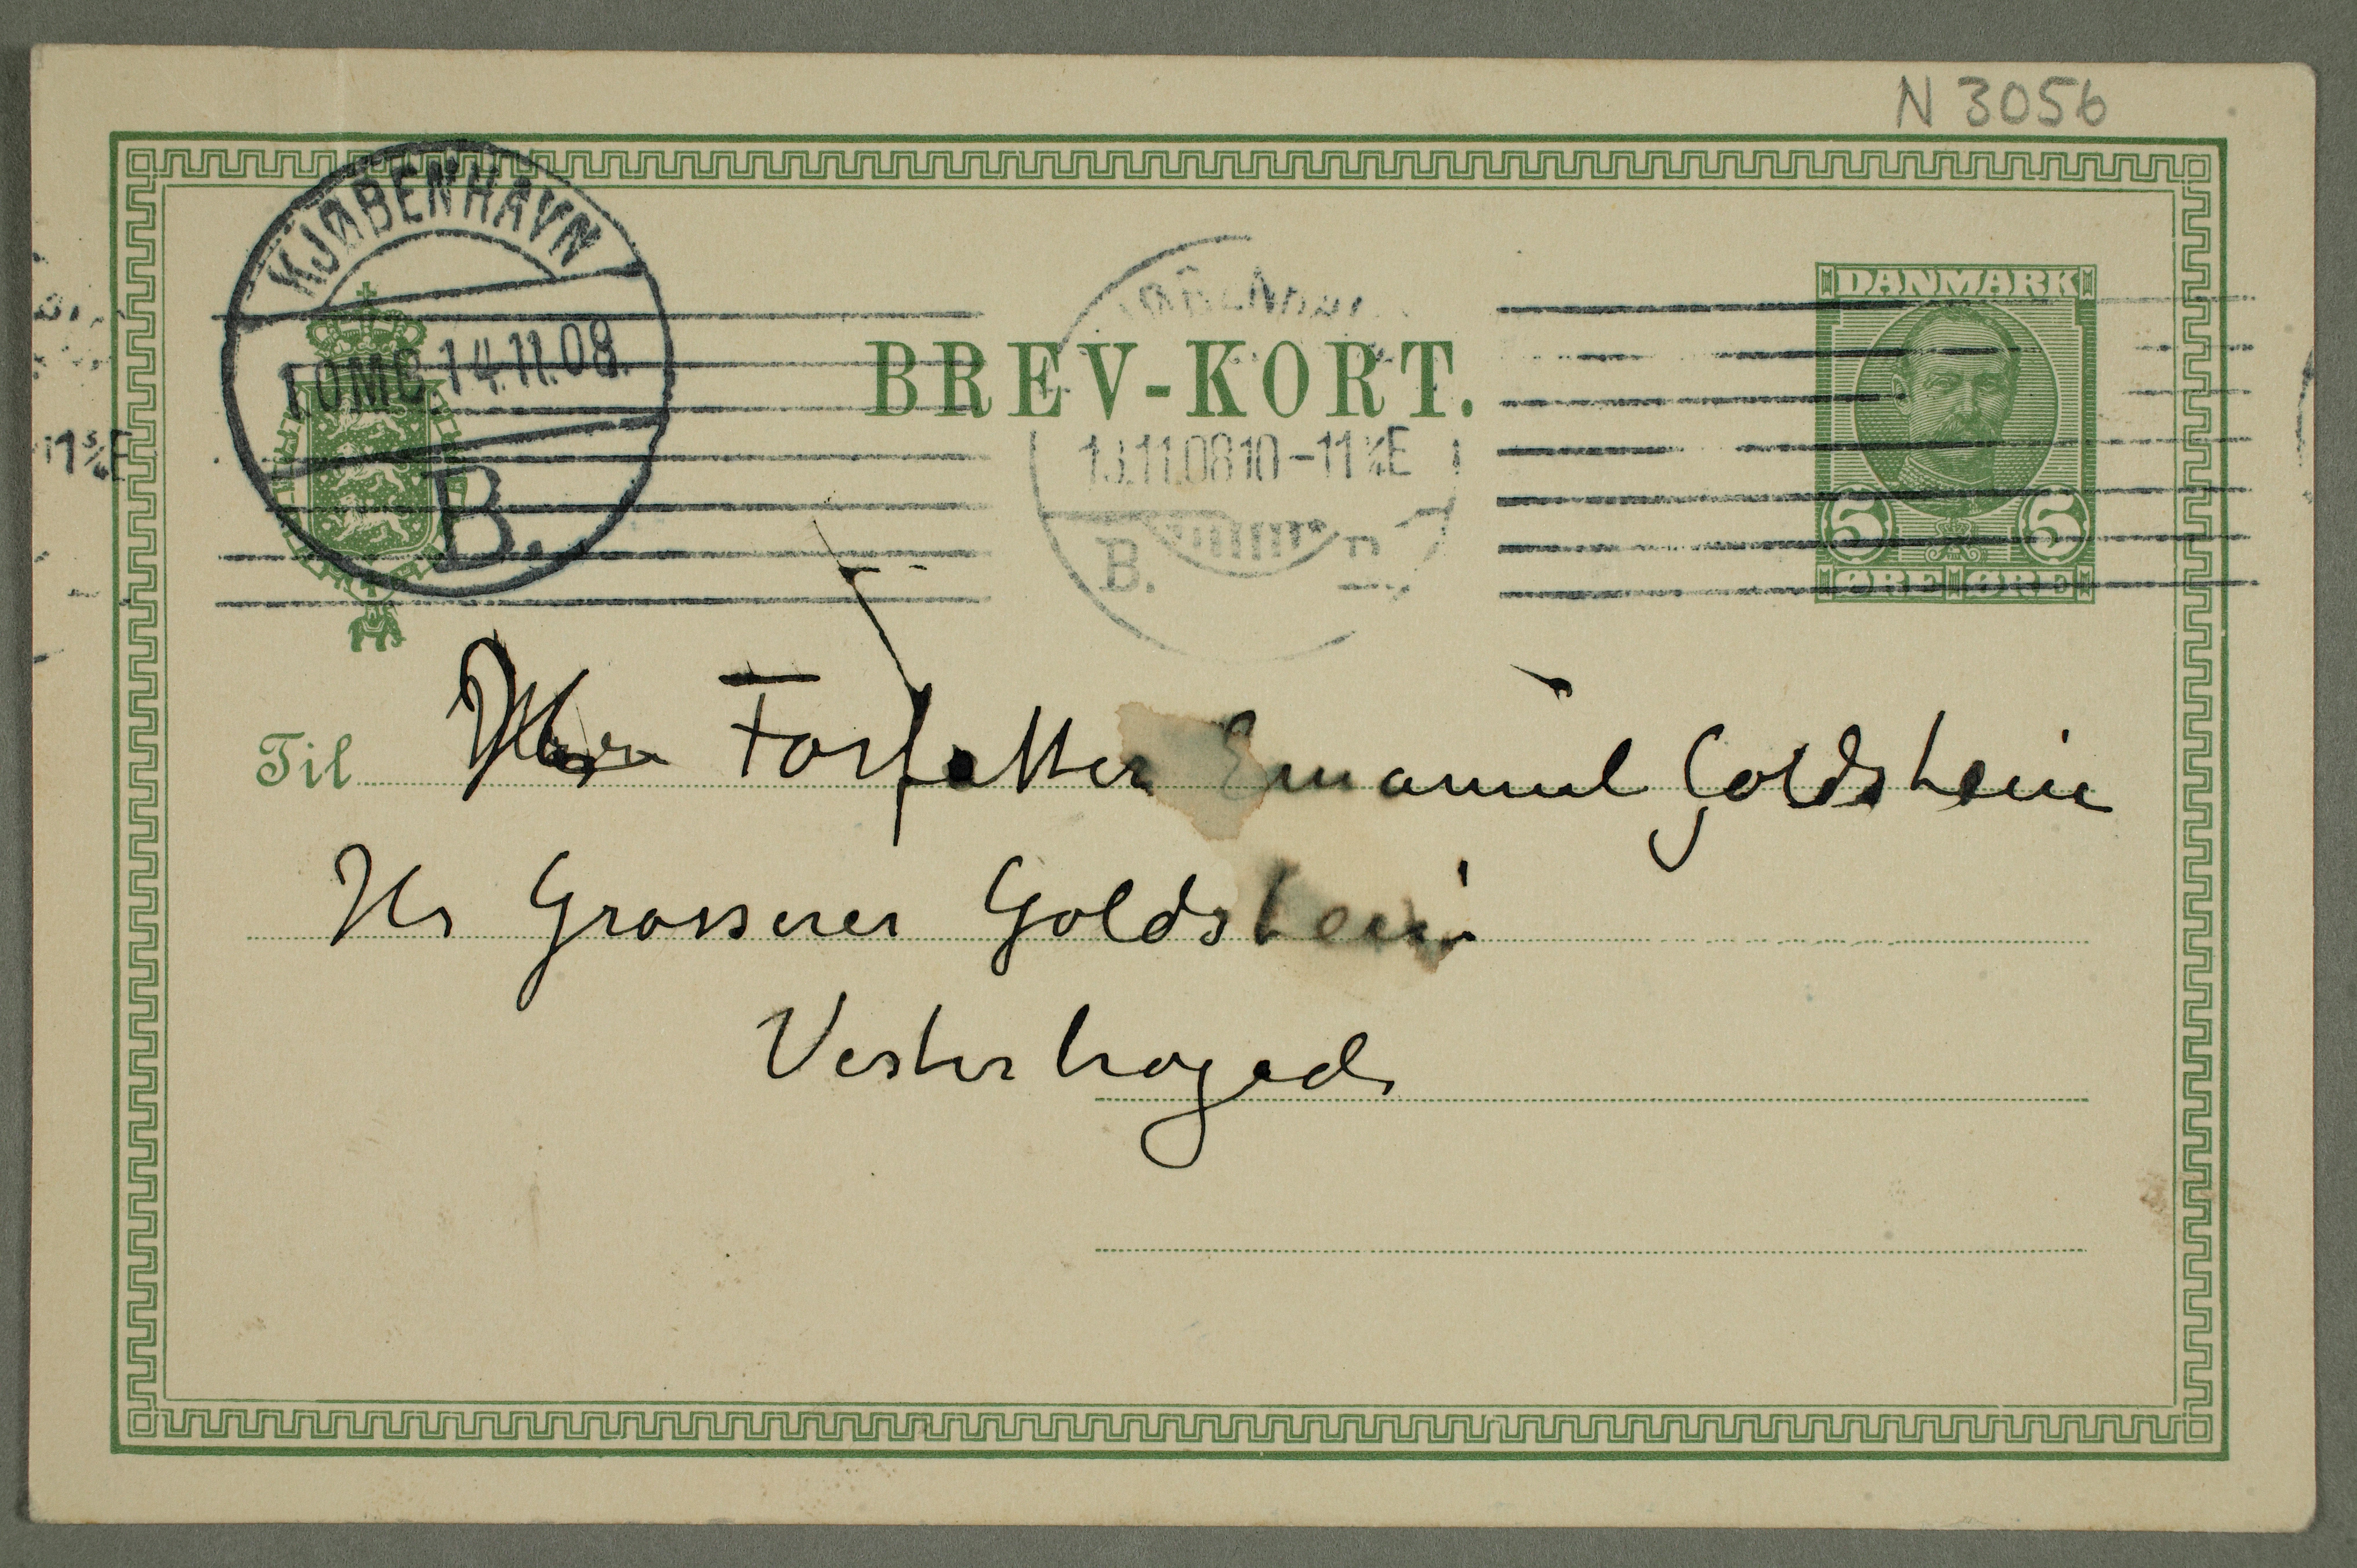 N 3056
KJØBENHAVN
1.OMB. 14.11.08.
B.
BREV-KORT.
13.11.08 10-11¾E
B.
11¾E
DANMARK
5 5
ØRE ØRE
Til Herr Forfatter Emanuel Goldstein
Hr Grosserer Goldstein
Vesterbrogade